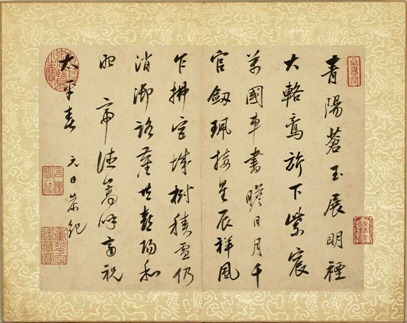 青陽蒼玉展明禋
大輅鸞旂下紫宸
萬國車書瞻日月千
官劍珮接星辰祥風
乍拂宮城樹積雪仍
消御路塵共陽和
帝德嵩呼齊祝
太平春 元日恭紀